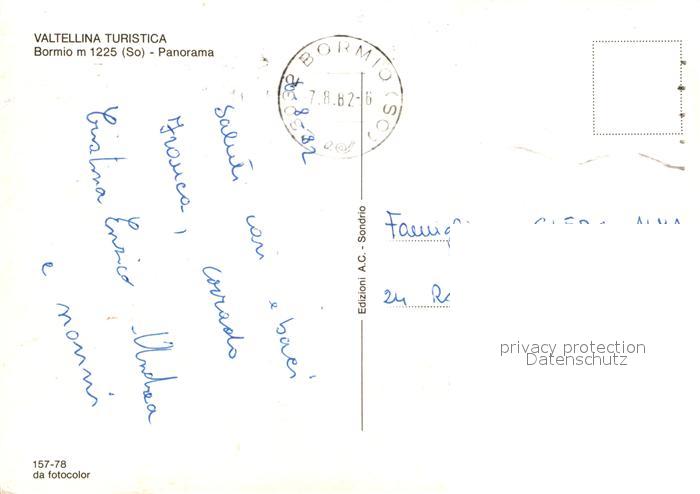 VALTELLINA TURISTICA
Bormio m 1225 (So) - Panorama
BORMIO (SO)
23032
7.8.82-6
6-8-82
Saluti cari e baci
Franca, Corrado
Cristina Enrico Andrea
e nonni
Edizioni A.C. - Sondrio
privacy protection
Datenschutz
157-78
da fotocolor